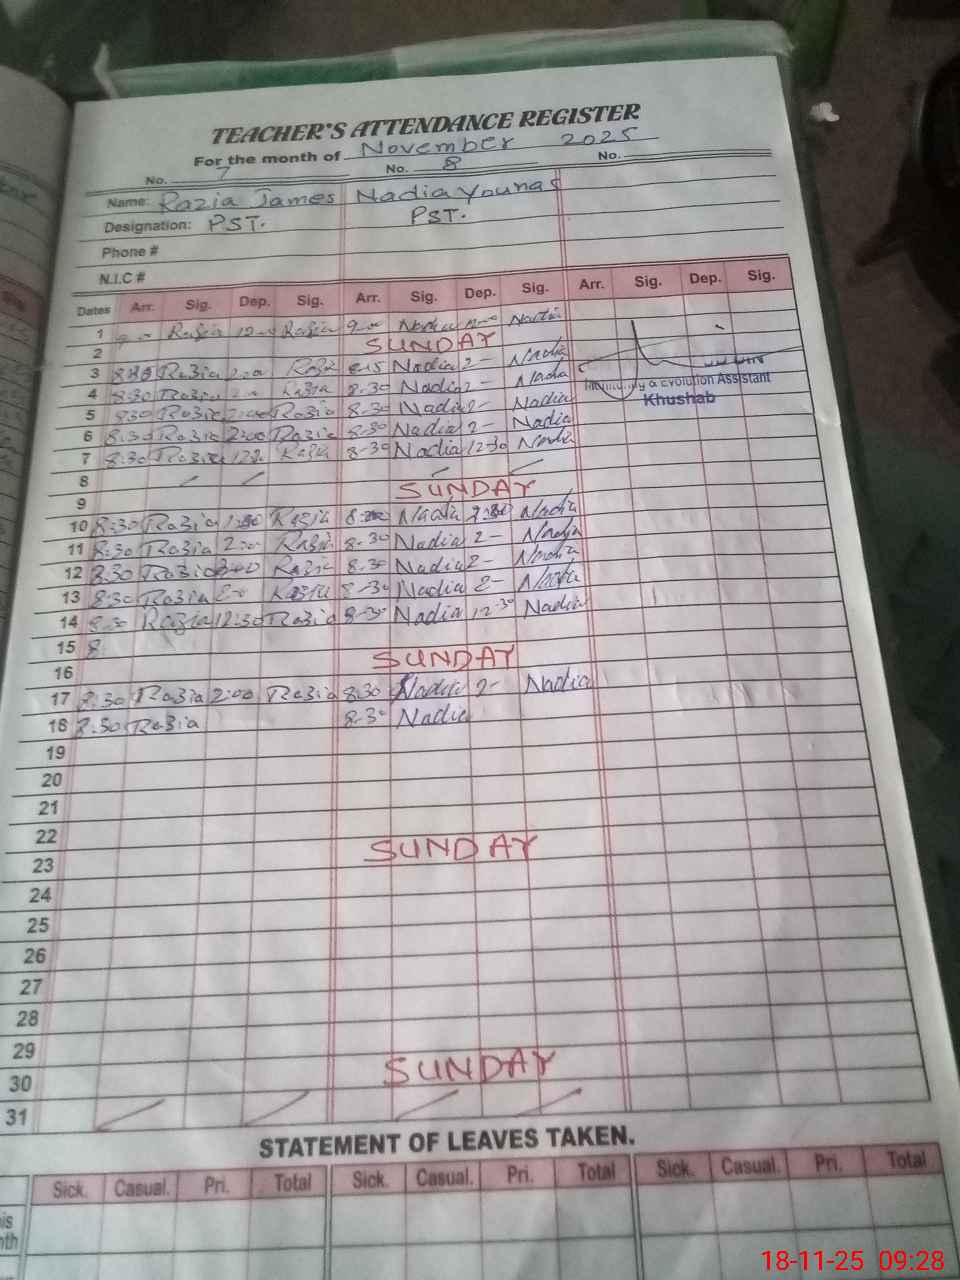 TEACHER'S ATTENDANCE REGISTER
For the month of November 2025
No. 7 No. 8 No.
Name: Razia James Nadia Younas
Designation: PST. PST.
Phone #
N.I.C #
Dates Arr. Sig. Dep. Sig. Arr. Sig. Dep. Sig. Arr. Sig. Dep. Sig.
1 Razia Razia Nadia Nadia
2 SUNDAY
3 Razia 8-15 Nadia 2- Nadia
4 8:30 Razia Razia 8-30 Nadia 2- Nadia
5 8:30 Razia 2:00 Razia 8-30 Nadia 2- Nadia
6 8:30 Razia 2:00 Razia 8-30 Nadia 2- Nadia
7 8:30 Razia Razia 8-30 Nadia 12-30 Nadia
8
9 SUNDAY
10 8:30 Razia Razia Nadia Nadia
11 8:30 Razia 2:00 Razia 8-30 Nadia 2- Nadia
12 8:30 Razia Razia 8-30 Nadia 2- Nadia
13 8:30 Razia Razia 8-30 Nadia 2- Nadia
14 8:30 Razia 12:30 Razia 8-30 Nadia 12-30 Nadia
15 8
16 SUNDAY
17 8:30 Razia 2:00 Razia 8:30 Nadia 2- Nadia
18 8:30 Razia 8-30 Nadia
19
20
21
22
23 SUNDAY
24
25
26
27
28
29
30 SUNDAY
31
Evolution Assistant
Khushab
STATEMENT OF LEAVES TAKEN.
Sick. Casual. Pri. Total Sick. Casual. Pri. Total Sick. Casual. Pri. Total
18-11-25 09:28